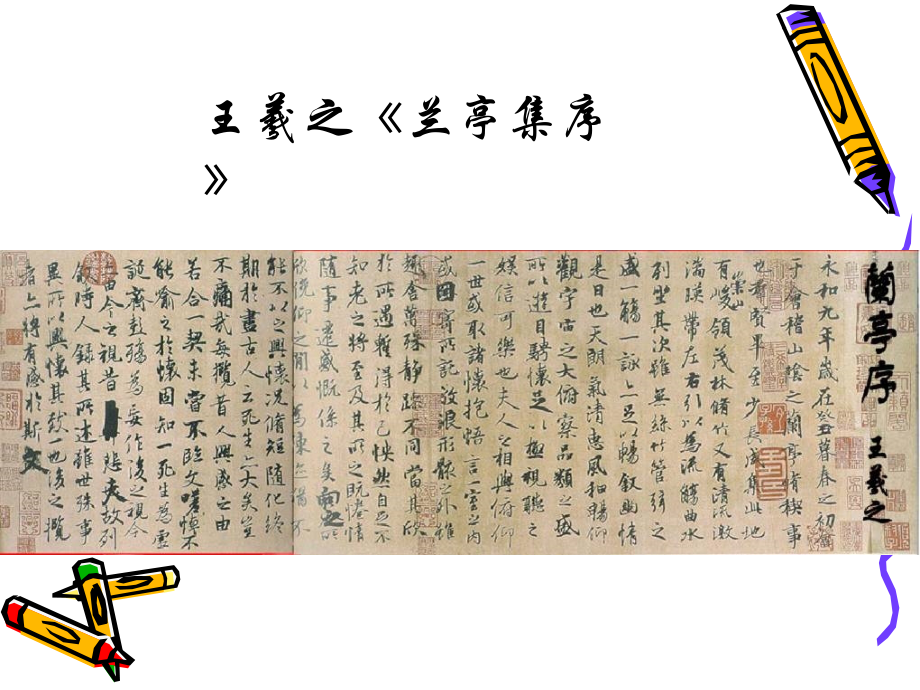 王羲之《兰亭集序
》
蘭亭序 王羲之
永和九年歲在癸丑暮春之初會
于會稽山陰之蘭亭脩稧事
也羣賢畢至少長咸集此地
有崇山峻領茂林脩竹又有清流激
湍暎帶左右引以為流觴曲水
列坐其次雖無絲竹管弦之
盛一觴一詠亦足以暢敘幽情
是日也天朗氣清惠風和暢仰
觀宇宙之大俯察品類之盛
所以遊目騁懷足以極視聽之
娛信可樂也夫人之相與俯仰
一世或取諸懷抱悟言一室之內
或因寄所託放浪形骸之外雖
趣舍萬殊靜躁不同當其欣
於所遇暫得於己怏然自足不
知老之將至及其所之既惓情
隨事遷感慨係之矣向之所
欣俛仰之間以為陳迹猶不
能不以之興懷況脩短隨化終
期於盡古人云死生亦大矣豈
不痛哉每攬昔人興感之由
若合一契未嘗不臨文嗟悼不
能喻之於懷固知一死生為虛
誕齊彭殤為妄作後之視今
亦由今之視昔悲夫故列
敘時人錄其所述雖世殊事
異所以興懷其致一也後之攬
者亦將有感於斯文